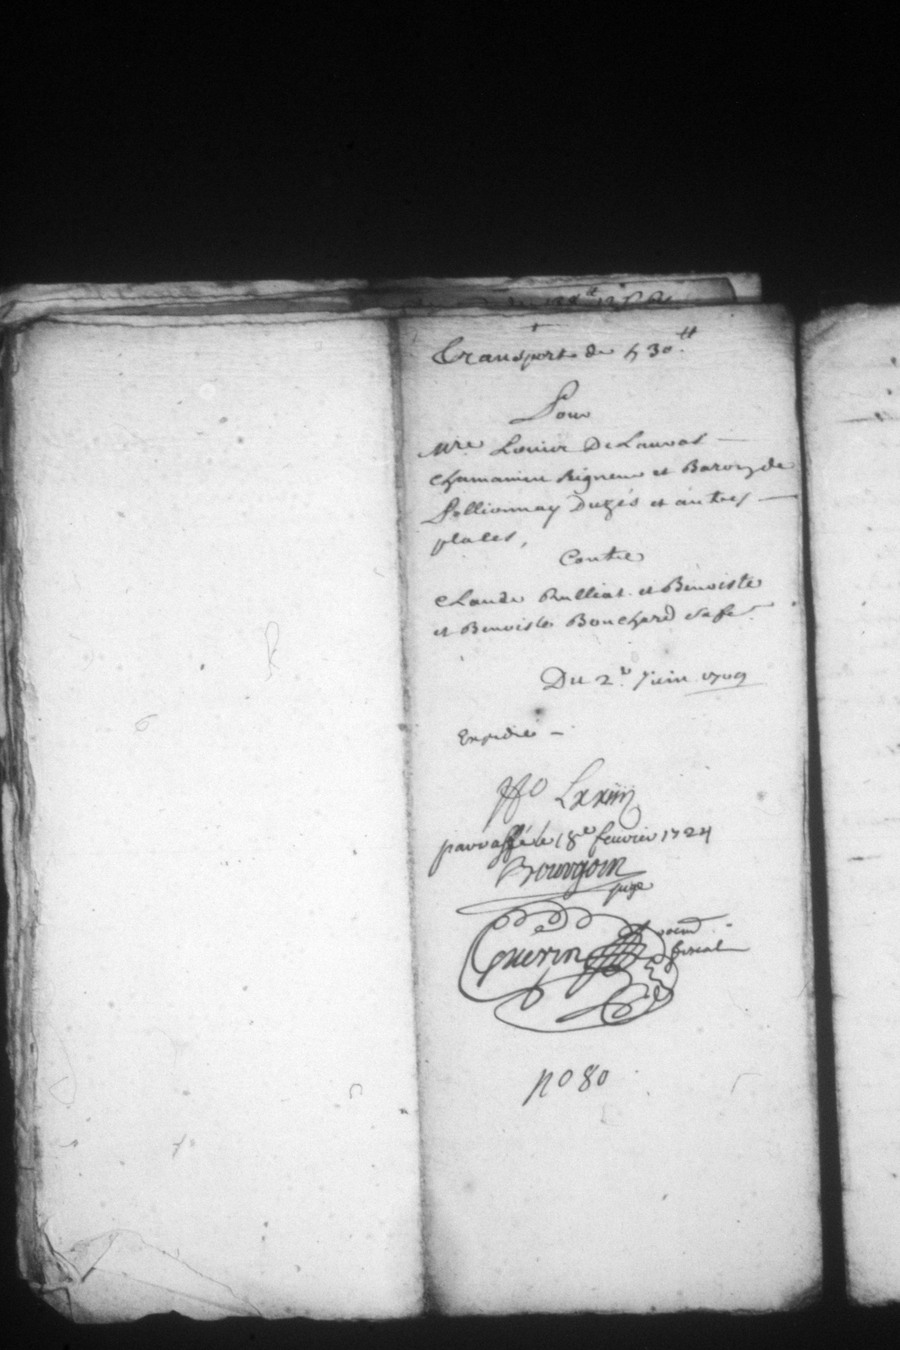 Transport de 430ᵗᵗ
Pour
Mre. Louis De Lauras
Chamanieu seigneur et Baron de
Sollionnay Dutzés et autres
places,
Contre
Claude Rulliat et Benoiste
et Benoiste Bouchard sa fe.
Du 2e Juin 1709
Expedié
ffo Lxxiii
paraffé le 18e feuvrier 1724
Bourgoin
juge
Guerin
fiscal
no 80